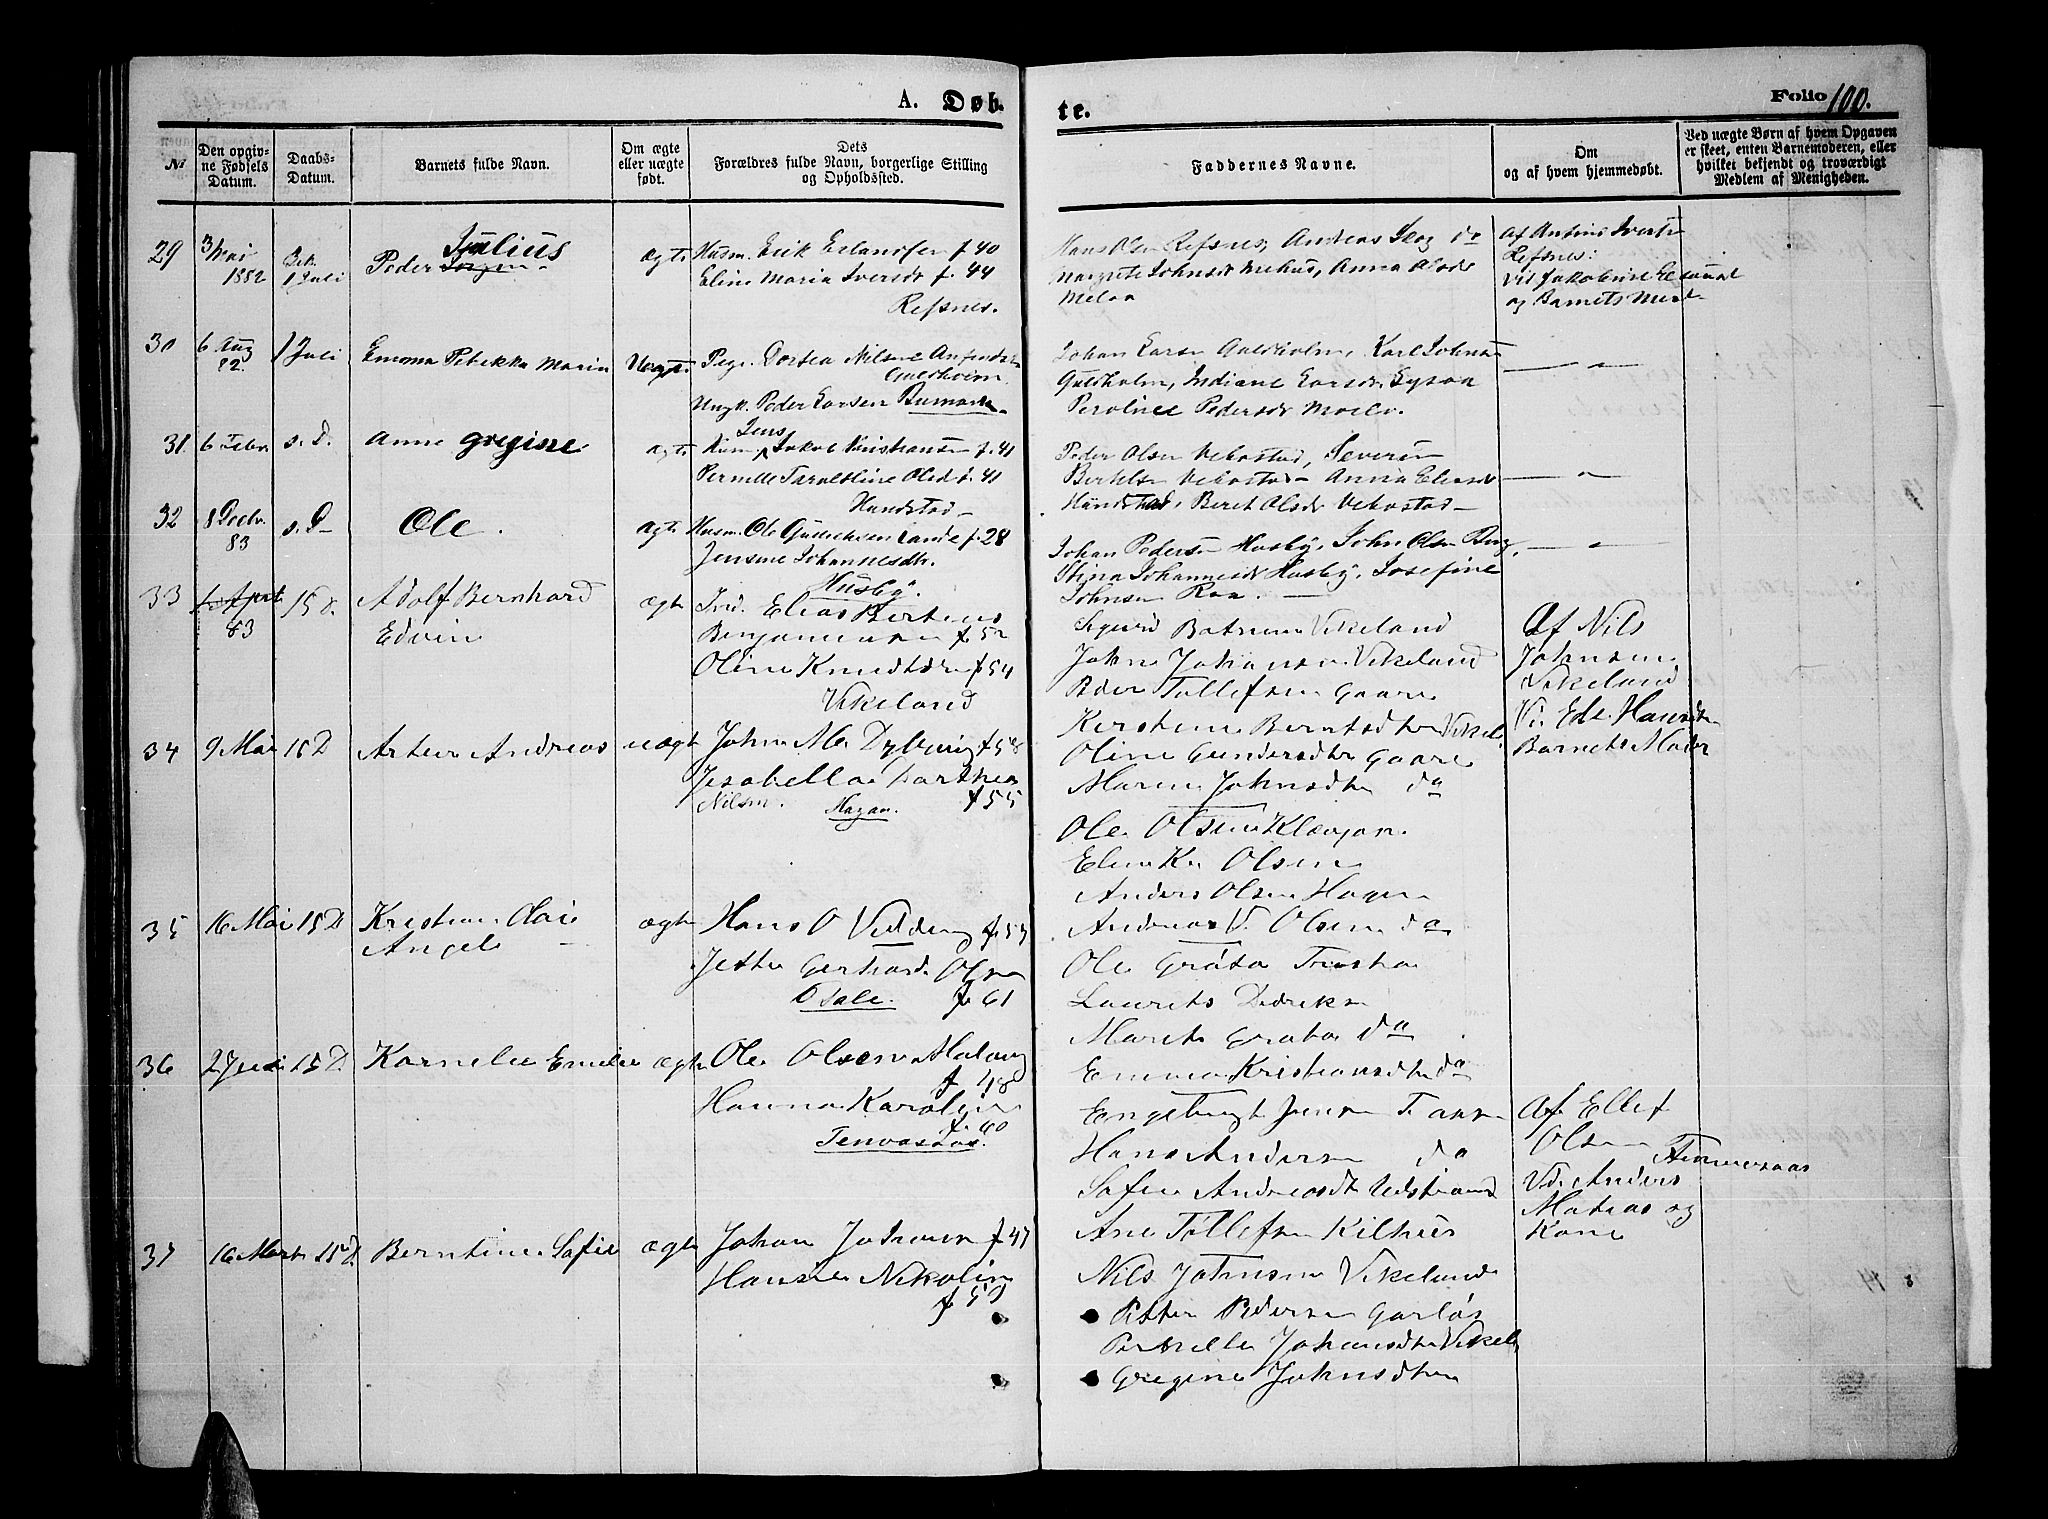 A. Døb-
te.
Folio 100.
No
Den opgiv-
ne Fødsels
Datum.
Daabs-
Datum.
Barnets fulde Navn.
Om ægte
eller uægte
født.
Dets
Forældres fulde Navn, borgerlige Stilling
og Opholdssted.
Faddernes Navne.
Om
og af hvem hjemmedøbt.
Ved uægte Børn af hvem Opgaven
er skeet, enten Barnemoderen, eller
hvilket bekjendt og troværdigt
Medlem af Menigheden.
29
3 Mai
1882
Bek.
1 Juli
Julius
Peder
ægte
Husm. Erik Erlandsen f. 40
Eline Maria Iversdr f. 44
Refsnes.
Hans Olsen Refsnes, Andreas Skog do
Margrete Johnsdr Mehus, Anna Olsdr
Melaa
af Antine Iversdr
Refsnes:
vid Jakobine
og Barnets Mod
30
6 Aug
82.
1 Juli
Emma Petrikka Maria
Uægte
Pige. Dortea Nilsine
Guldholm
Ungk. Peder Larsen
Johan Larsen Guldholm, Karl Johns
Guldholm, Indiane Larsdr
Peroline Pedersdr
— " —
31.
6 Febr
s. D.
Anne Gregine
ægte
Jens
Husm. Jakob Kristiansen f. 41
Pernille Olsd f. 41
Hundstad
Peder Olsen Vebostad, Severin
Bertels Vebostad Anna Eliasdr
Hundstad, Beret Olsdr Vebostad
— " —
32
8 Febr.
83
s. D
Ole.
ægte
Husm. Ole Gulliksen Lande f. 28
Jensine Johannesdr.
Husby.
Johan Pedersen Husby, John Olsen Berg,
Stina Johannesdr Husby, Josefine
Johnsen Raa.
— " —
33
April
83
15 d.
Adolf Bernhard
Edvin
ægte
Ind. Elias Bertens
Benjaminsen f. 52
Oline Knudsdtr f. 54
Vikeland
Sigurd Vikeland
John Johansen Vikeland
Peder Tollefsen Gaare
Kerstine Berntsdtr Vikel.
Oline Gundersdtr Gaare
Maren Johnsdtr do
Af Nils
Johnsen
Vikeland
Vi. Hansdtr
Barnets Moder
34
9 Mai
15 D
Artur Andreas
uægte
John M. f. 58
Jesabella Dorthea
Nilsen. Hagan. f. 55
Ole Olsen
Elen K. Olsen
Anders Olsen Hagen
Andreas V. Olsen do
35
16 Mai
15 D
Kristian Olai
Angel
ægte
Hans O f. 53
Jette Gerhard Olsen
f. 61
Ole Grøtø
Laurits Dideriks
Marit Grøtø do
Emma Kristiansdtr do
36
2 Juni
15 D
Kornelie Emilie
ægte
Ole Olsen
f. 48
Hanna Karoline
f. 60
Engebrigt Jensen
Hans Andersen do
Sofie Andreasdtr
Ane Tollefsen Kilhus
Af Ellef
Olsen
Vd. Anders
Matias og
Kone
37
16 Marts
15 D.
Berntine Sofie
ægte
Johan Johansen f. 47
Hansine Nikoline
Nils Johnsen Vikeland
Petter Pedersen
Pernille Johansdtr Vikel
Gregine Johnsdtr